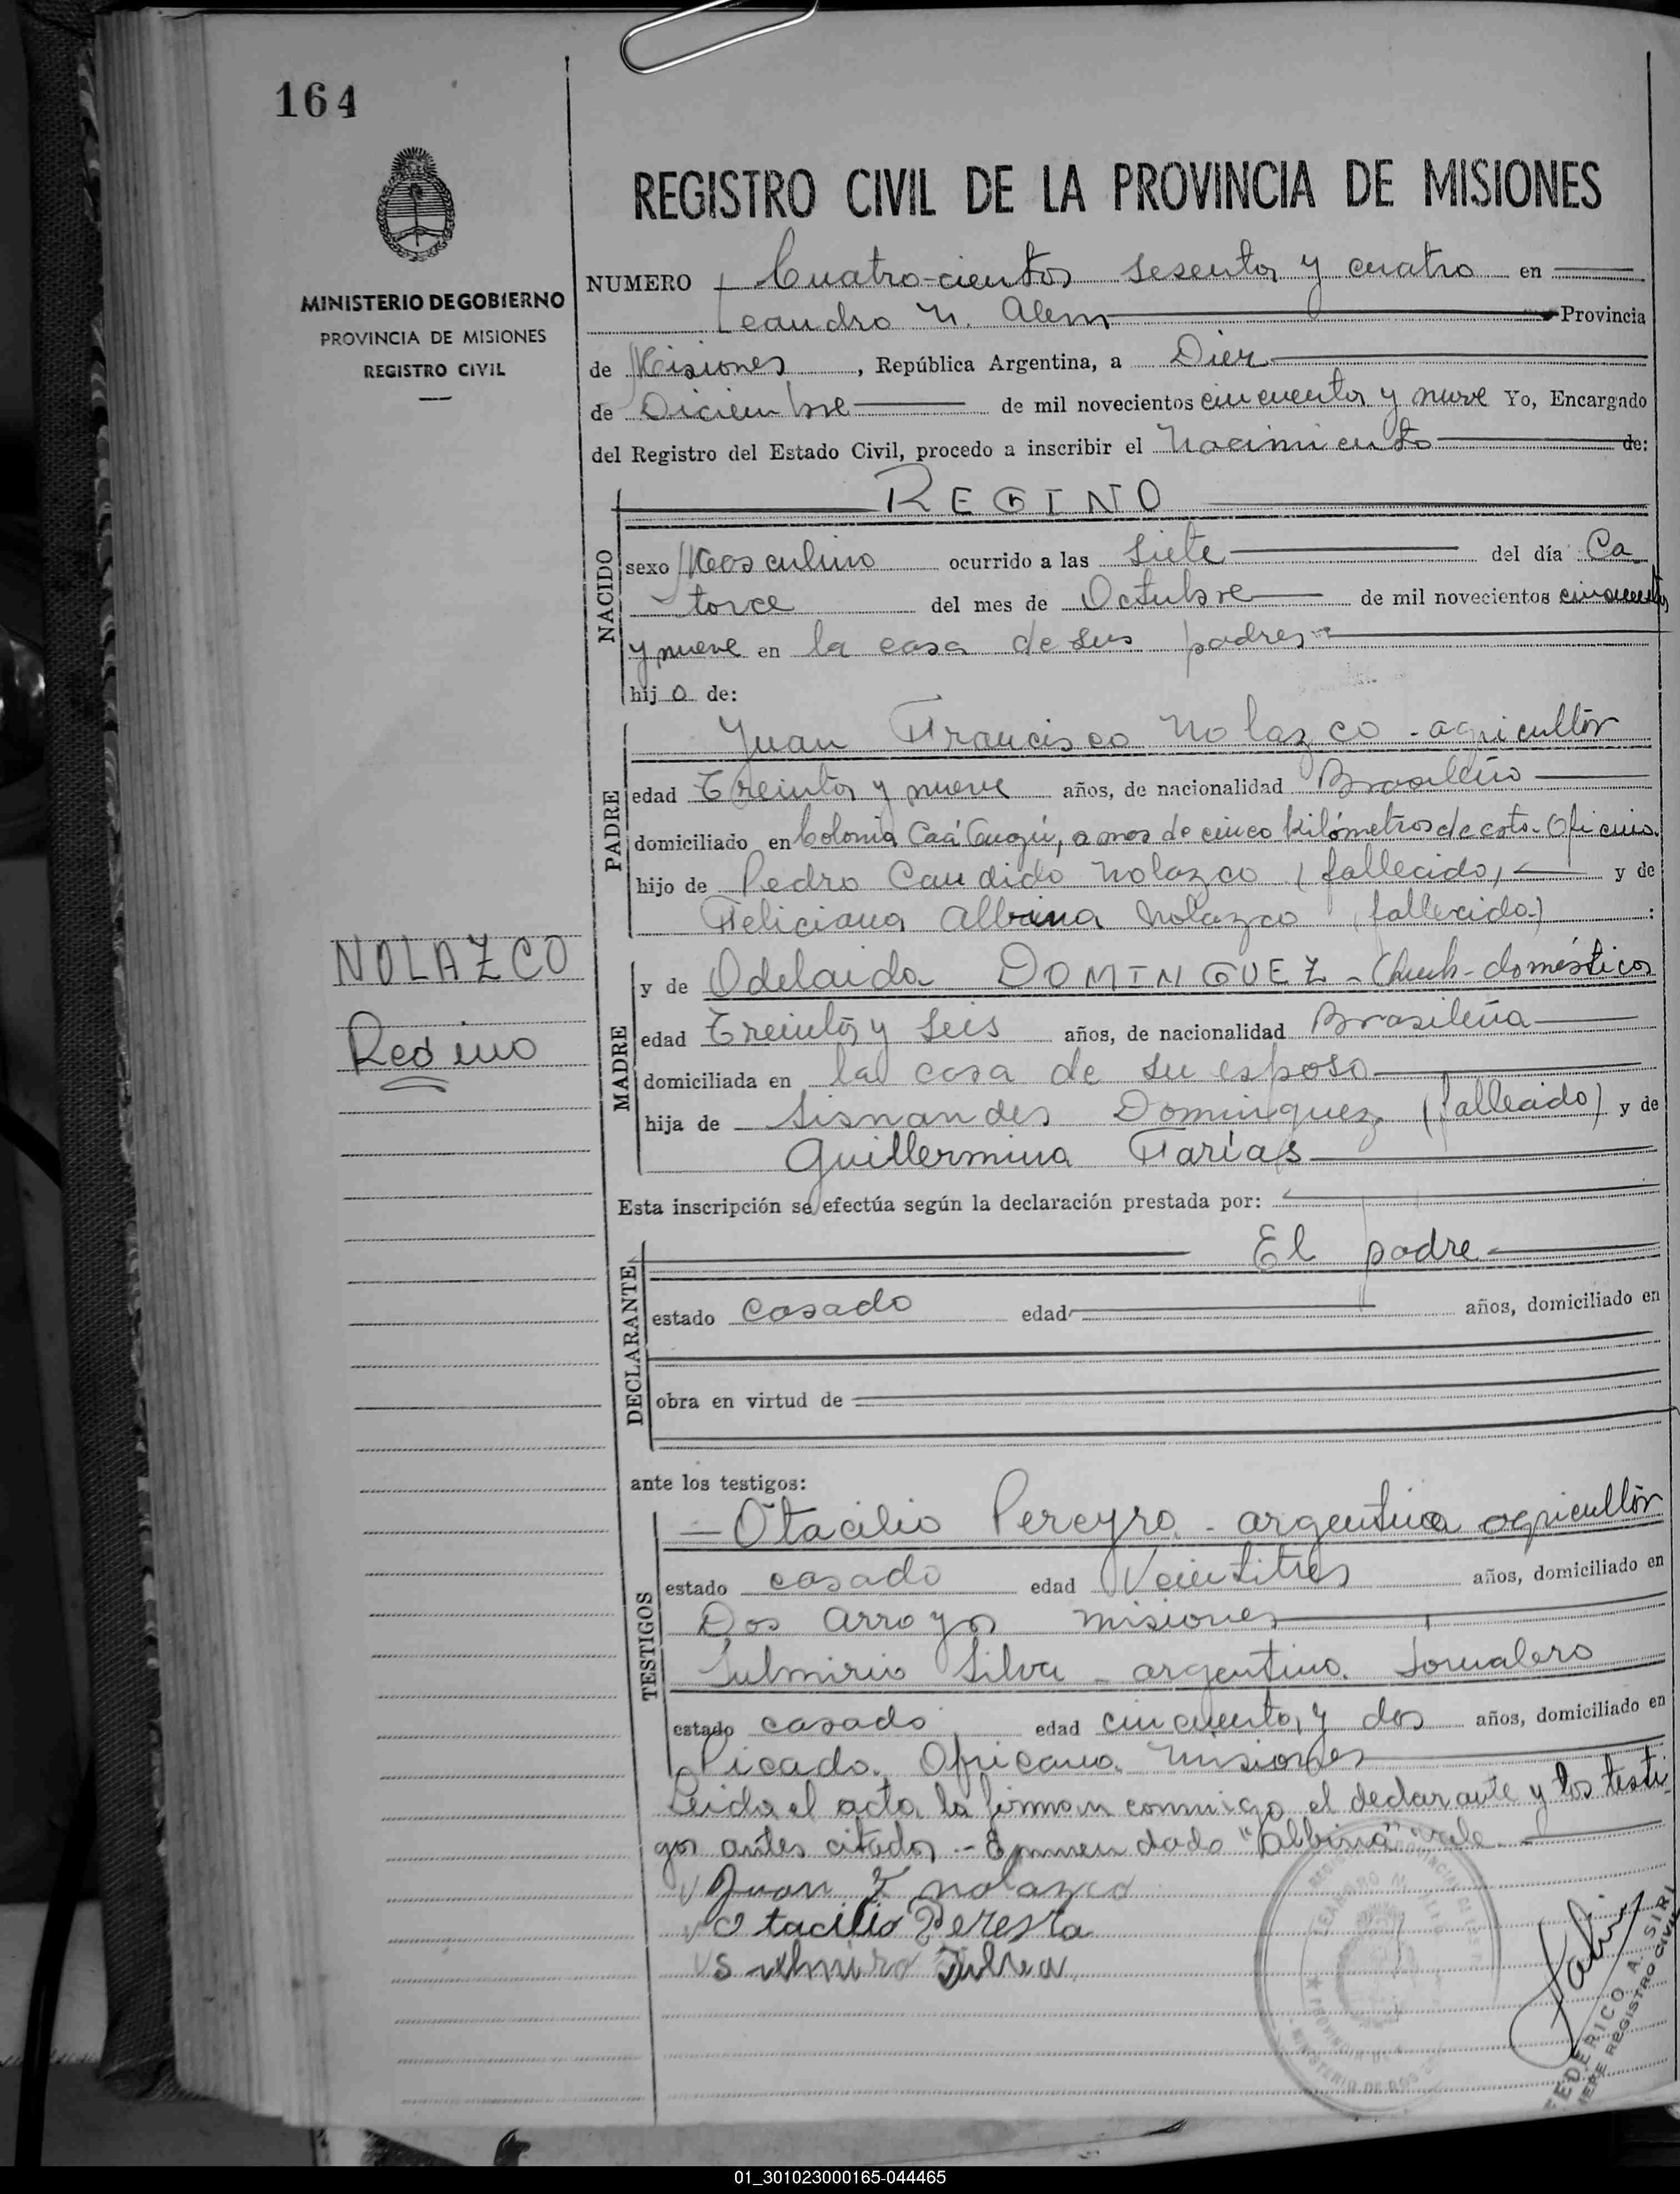 164
MINISTERIO DE GOBIERNO
PROVINCIA DE MISIONES
REGISTRO CIVIL
REGISTRO CIVIL DE LA PROVINCIA DE MISIONES
NUMERO Cuatro-cientos sesenta y cuatro en
Leandro N. Alem Provincia
de Misiones, República Argentina, a Diez
de Diciembre de mil novecientos cincuenta y nueve Yo, Encargado
del Registro del Estado Civil, procedo a inscribir el Nacimiento de:
NACIDO
REGINO
sexo Masculino ocurrido a las Siete del día Ca
torce del mes de Octubre de mil novecientos cincuenta
y nueve en la casa de sus padres
hijo de:
PADRE
Juan Francisco Nolazco - agricultor
edad Treinta y nueve años, de nacionalidad Brasileño
domiciliado en Colonia Caá Guazú, a mas de cinco kilómetros de esta Oficina.
hijo de Pedro Candido Nolazco (fallecido) y de
Feliciana Albina Nolazco (fallecida) :
NOLAZCO
Regino
MADRE
y de Odelaida DOMINGUEZ - Queh-domésticos
edad Treinta y Seis años, de nacionalidad Brasileña
domiciliada en la casa de su esposo
hija de Sisnandes Dominguez (fallecido) y de
Guillermina Farías
Esta inscripción se efectúa según la declaración prestada por:
DECLARANTE
El padre
estado casado edad años, domiciliado en
obra en virtud de
ante los testigos:
TESTIGOS
Otacilio Pereyra - argentino agricultor
estado casado edad Veintitres años, domiciliado en
Dos Arroyos Misiones
Sulmirio Silva - argentino Jornalero
estado casado edad cincuenta y dos años, domiciliado en
Picada Africana Misiones
Leida el acta la firman conmigo el declarante y los testi
gos antes citados - Enmendado "Albina" vale.
Juan F nolazco
Otacilio Pereira
Sulmiro Silva
FEDERICO A. SIRI
JEFE REGISTRO CIVIL
01_301023000165-044465